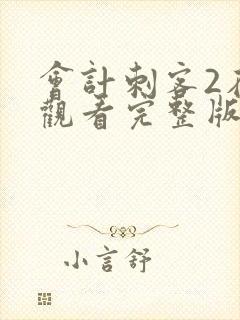 會計刺客2在
觀看完整版
小言舒